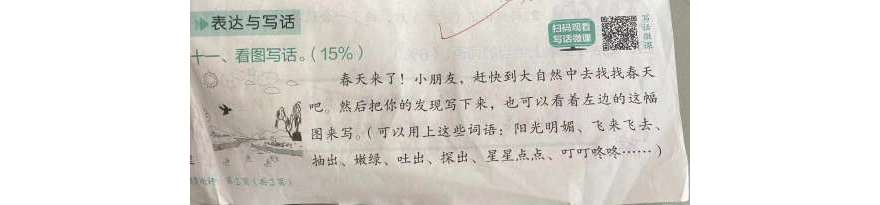 表达与写话
扫码观看
写话微课
写话微课
十一、看图写话。(15%)
春天来了！小朋友，赶快到大自然中去找找春天
吧。然后把你的发现写下来，也可以看着左边的这幅
图来写。(可以用上这些词语：阳光明媚、飞来飞去、
抽出、嫩绿、吐出、探出、星星点点、叮叮咚咚……)